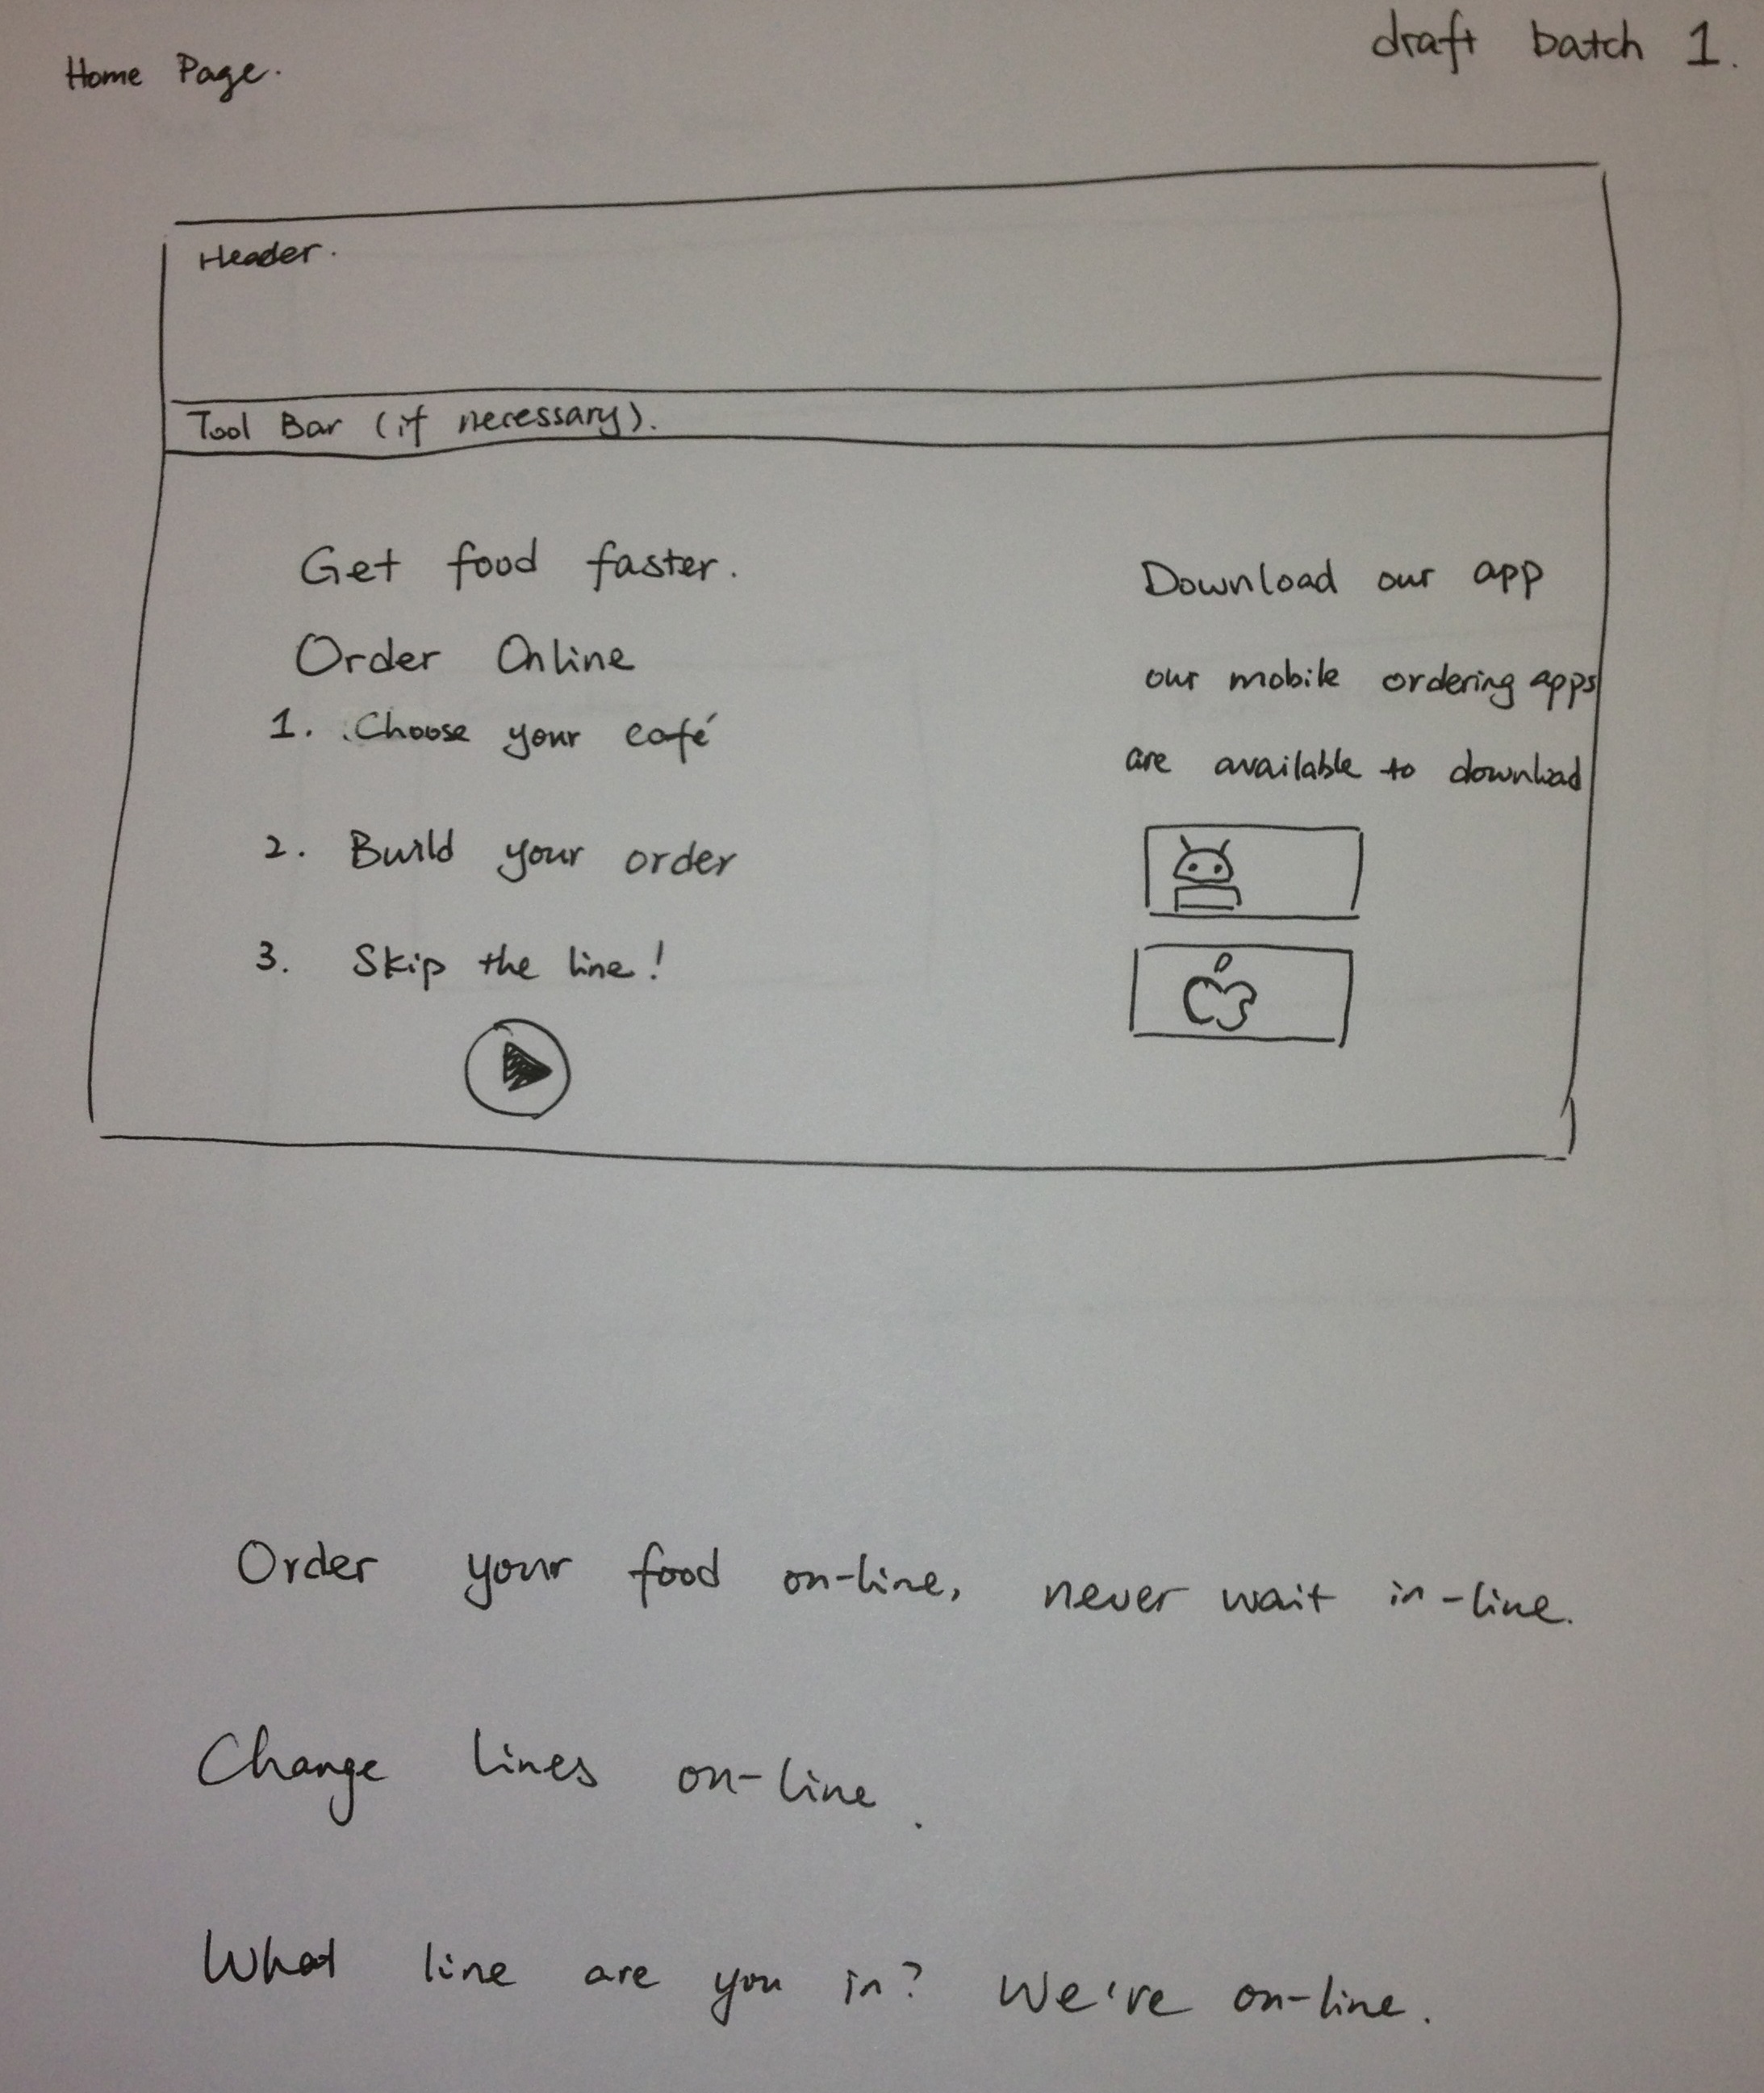 Home Page.
draft batch 1.
Header.
Tool Bar (if necessary).
Get food faster.
Order Online
1. Choose your café
2. Build your order
3. Skip the line!
Download our app
our mobile ordering apps
are available to download
Order your food on-line, never wait in-line.
Change lines on-line.
What line are you in? We're on-line.